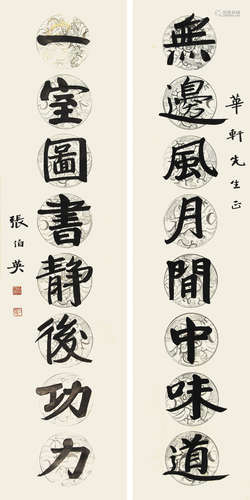 華軒先生正
無邊風月間中味道
一室圖書静後功力
張伯英